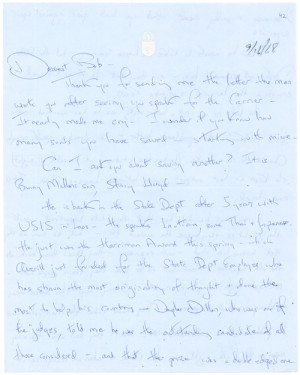 9/18/68
Dearest Bob -
Thank you for sending me the letter the man
wrote you after seeing you speak for the
It really made me cry - I wonder if you know how
many souls you have saved - starting with mine -
Can I ask you about saving another? It is
Bunny Mellon's son, Stacy Lloyd -
He is back in the State Dept after 5 years with
USIS in Laos - He speaks Laotian, some Thai & Japanese
He just won the Harriman Award this spring - which
Averill just founded for the State Dept Employee who
has shown the most originality of thought & done the
most to help his country - Douglas Dillon, who was one of
the judges, told me he was the outstanding candidate of all
those considered - and that the prize was